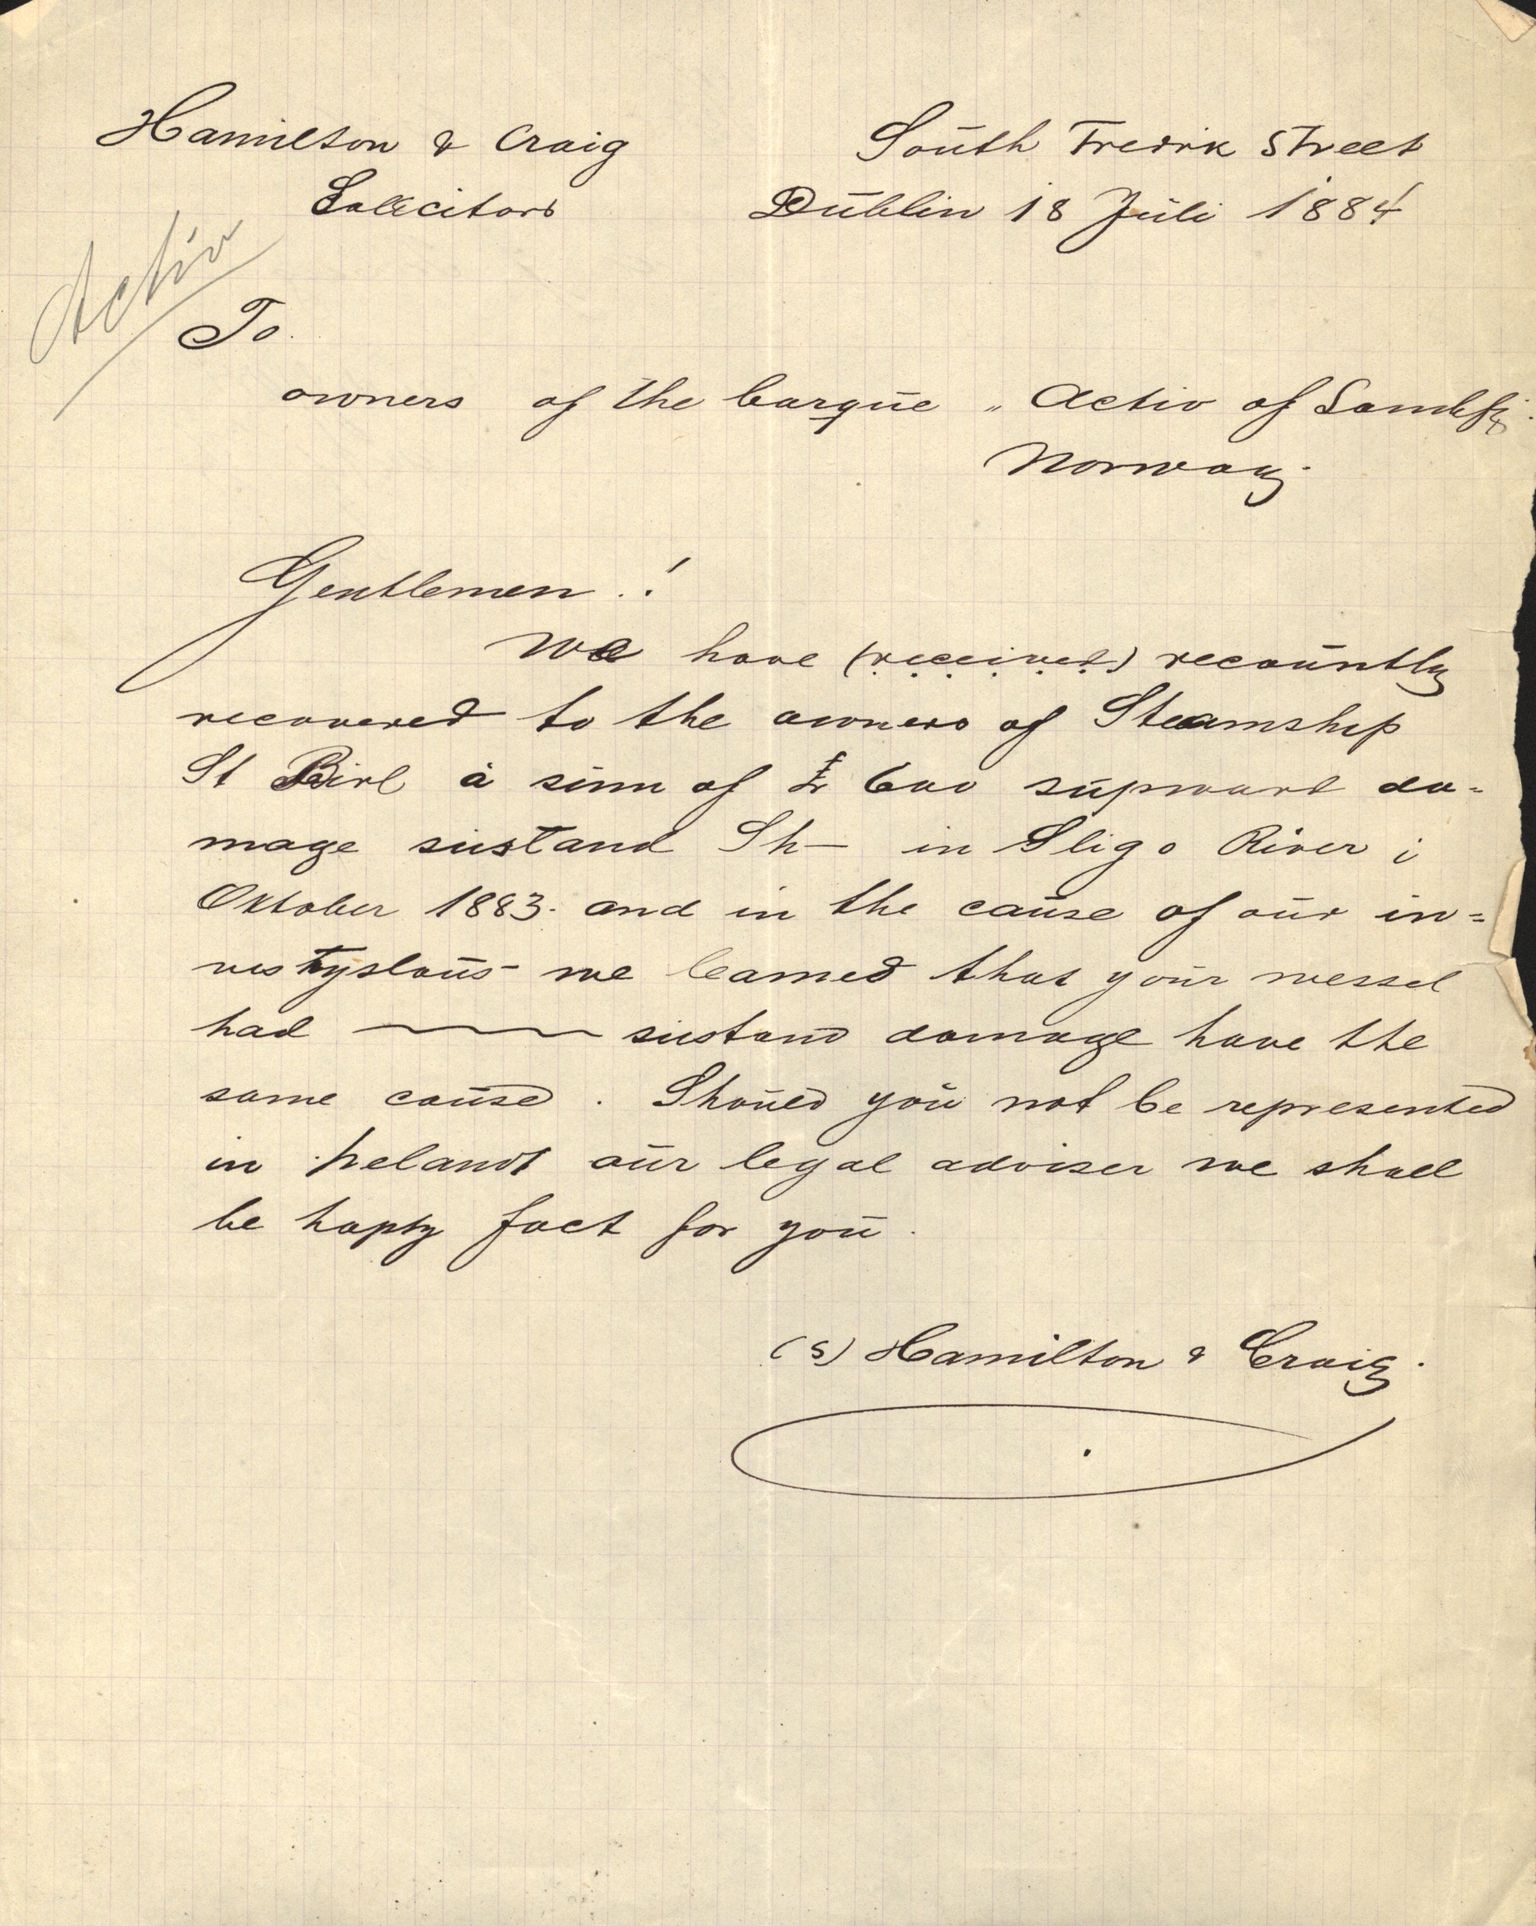 Hamilton & Craig
Sollicitors
South Fredrik Street
Dublin 18 Juli 1884
Activ
To.
owners of the barque „ Activ of Sandefj.
Norway.
Gentlemen.!
We have (received) recountly
recovered to the owners of Steamship
St a sum of £ 600 supward da=
mage sustand Sh— in Sligo River i
Oktober 1883. and in the cause of our in=
we learned that your wessel
had sustand damage have the
same caused. Should you not be represented
in Irelandt our legal adviser we shall
be happy fact for you.
(s) Hamilton & Craig.